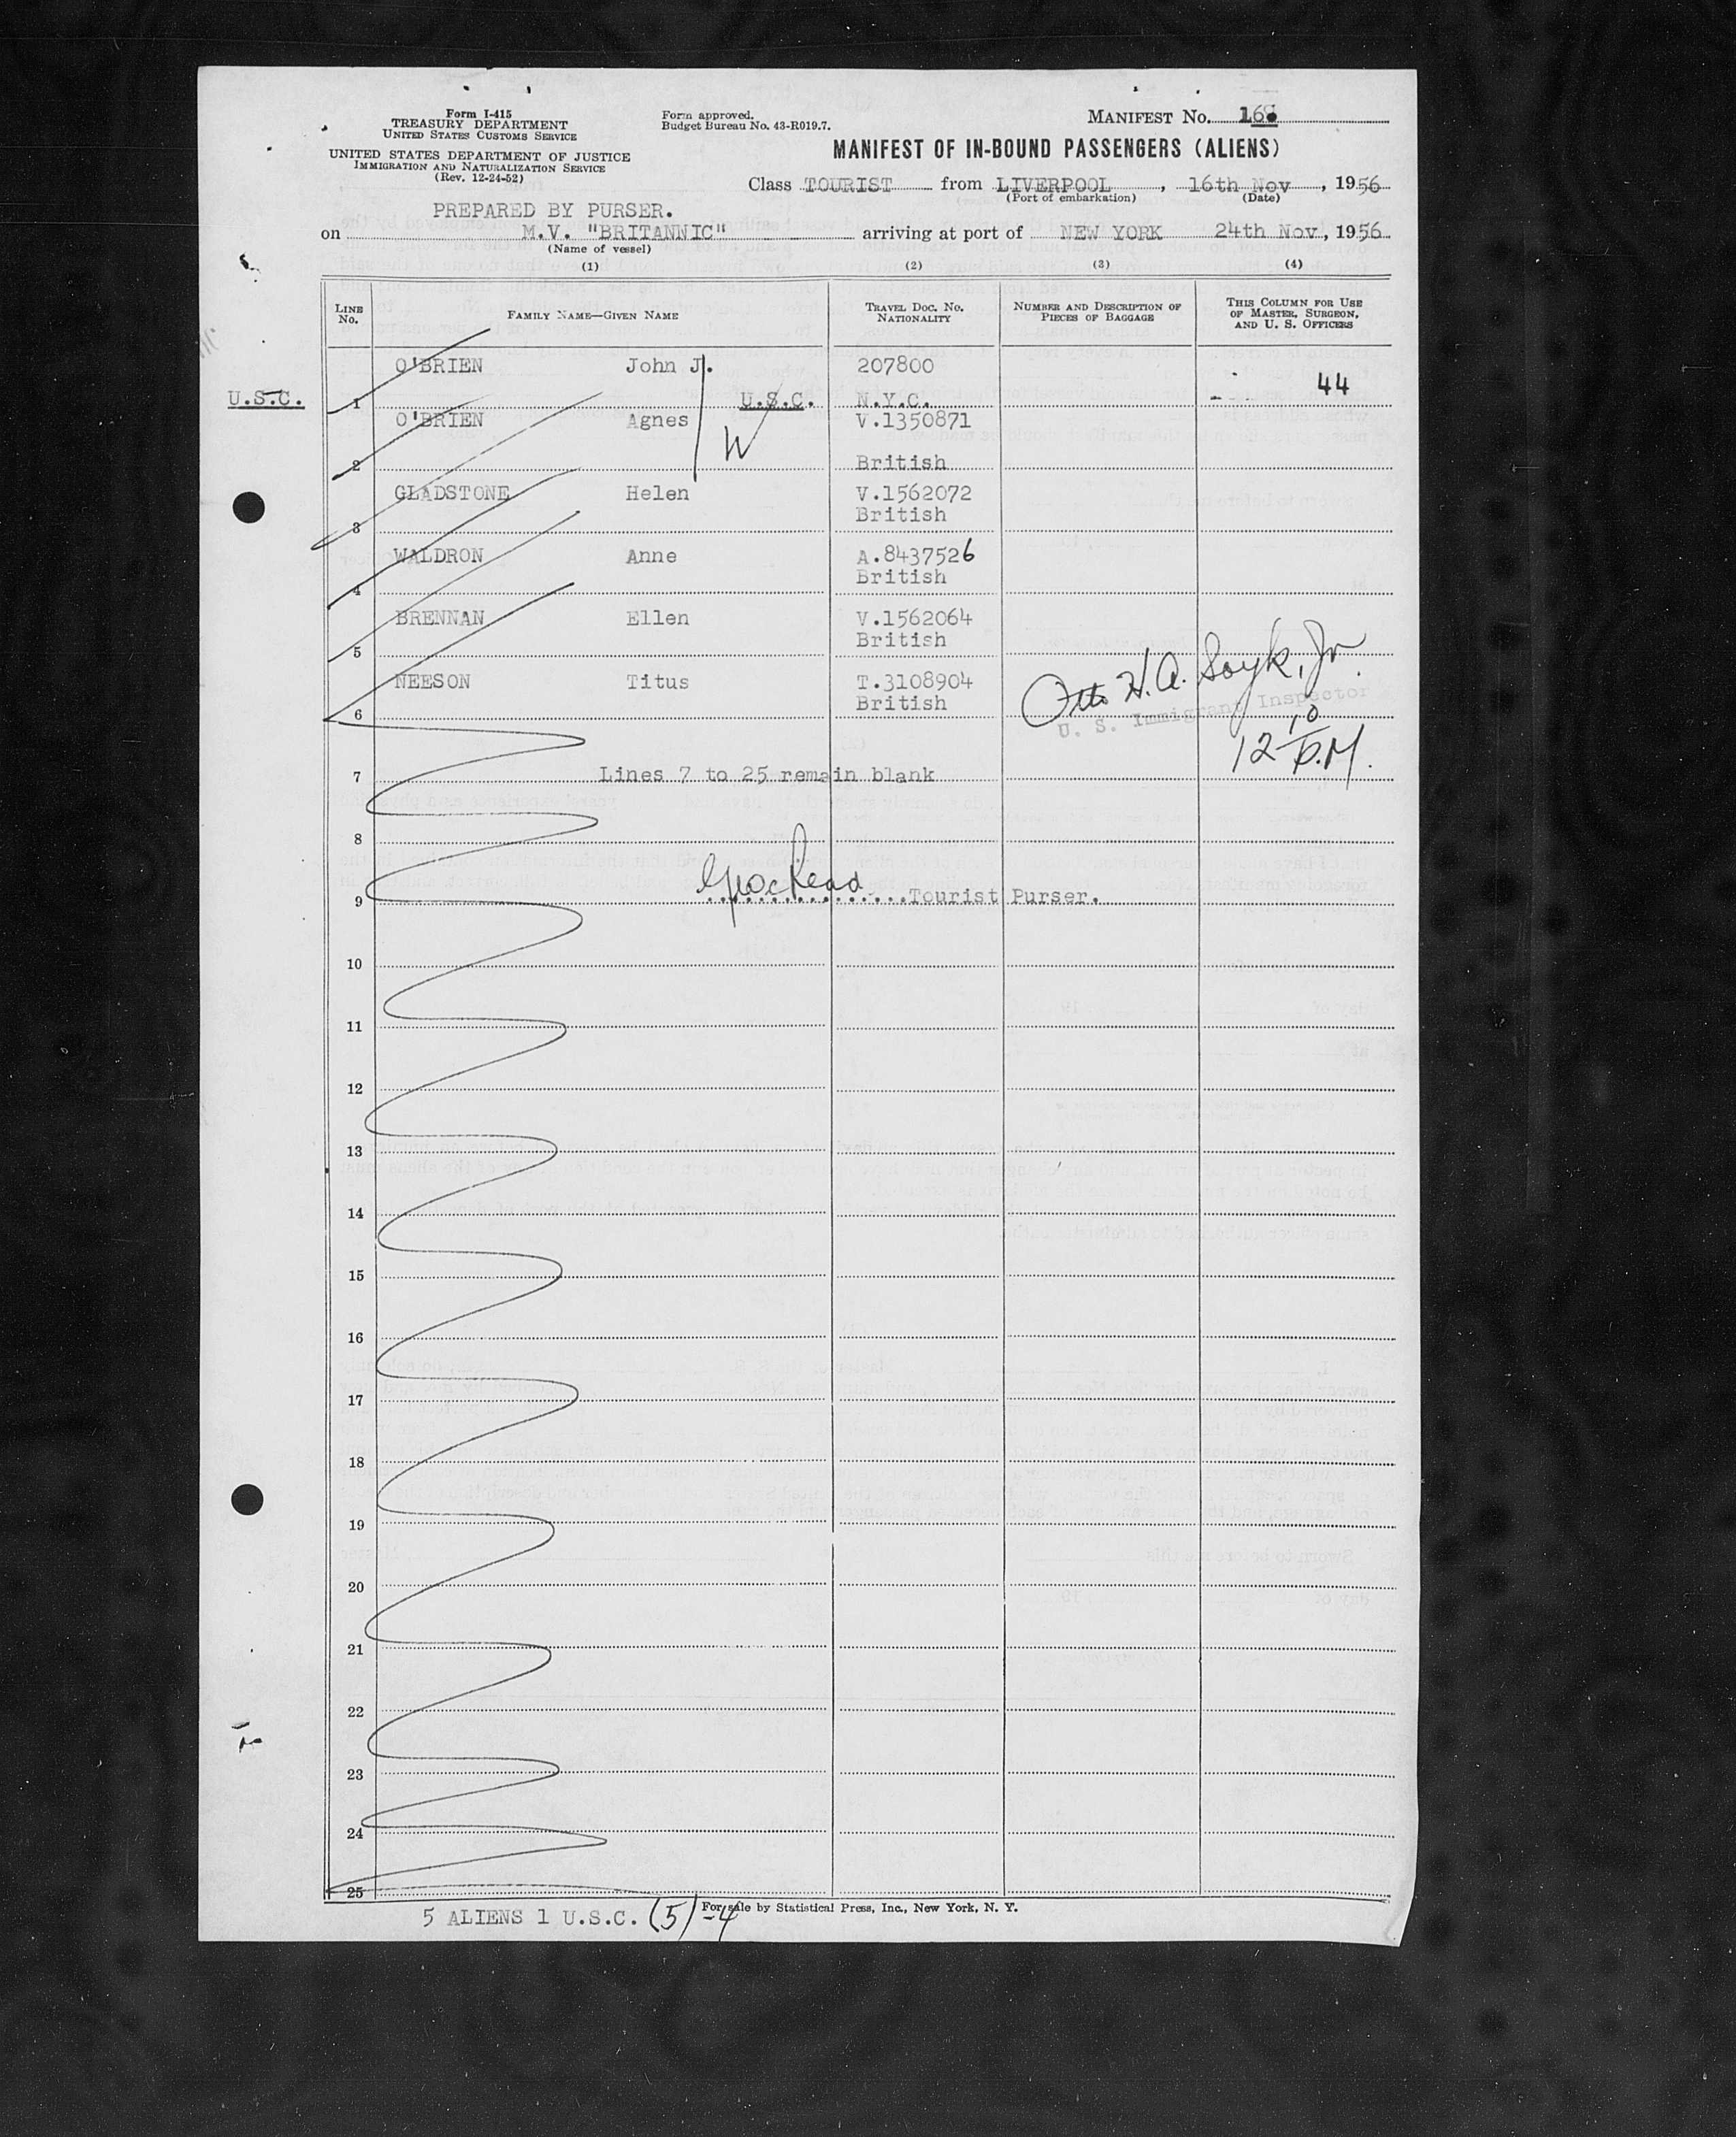 Form I-415
TREASURY DEPARTMENT
UNITED STATES CUSTOMS SERVICE
UNITED STATES DEPARTMENT OF JUSTICE
IMMIGRATION AND NATURALIZATION SERVICE
(Rev. 12-24-52)
Form approved.
Budget Bureau No. 43-R019.7.
MANIFEST No.
MANIFEST OF IN-BOUND PASSENGERS (ALIENS)
Class TOURIST from LIVERPOOL, 16th Nov, 1956
(Port of embarkation) (Date)
PREPARED BY PURSER.
on M.V. "BRITANNIC" arriving at port of NEW YORK 24th Nov, 1956
(Name of vessel)
(1) (2) (3) (4)
LINE No. FAMILY NAME—GIVEN NAME TRAVEL DOC. NO. NATIONALITY NUMBER AND DESCRIPTION OF PIECES OF BAGGAGE THIS COLUMN FOR USE OF MASTER, SURGEON, AND U. S. OFFICERS
O'BRIEN John J. 207800
U.S.C. 1 U.S.C. N.Y.C. 44
O'BRIEN Agnes V.1350871
2 W British
GLADSTONE Helen V.1562072
3 British
WALDRON Anne A.8437526
4 British
BRENNAN Ellen V.1562064
5 British
NEESON Titus T.3108904
6 British
Otto H. A. Soyk, Jr
U. S. Immigrant Inspector
12 10 P.M.
7 Lines 7 to 25 remain blank
8
9 Tourist Purser.
10
11
12
13
14
15
16
17
18
19
20
21
22
23
24
25
For sale by Statistical Press, Inc., New York, N. Y.
5 ALIENS 1 U.S.C. (5) -4